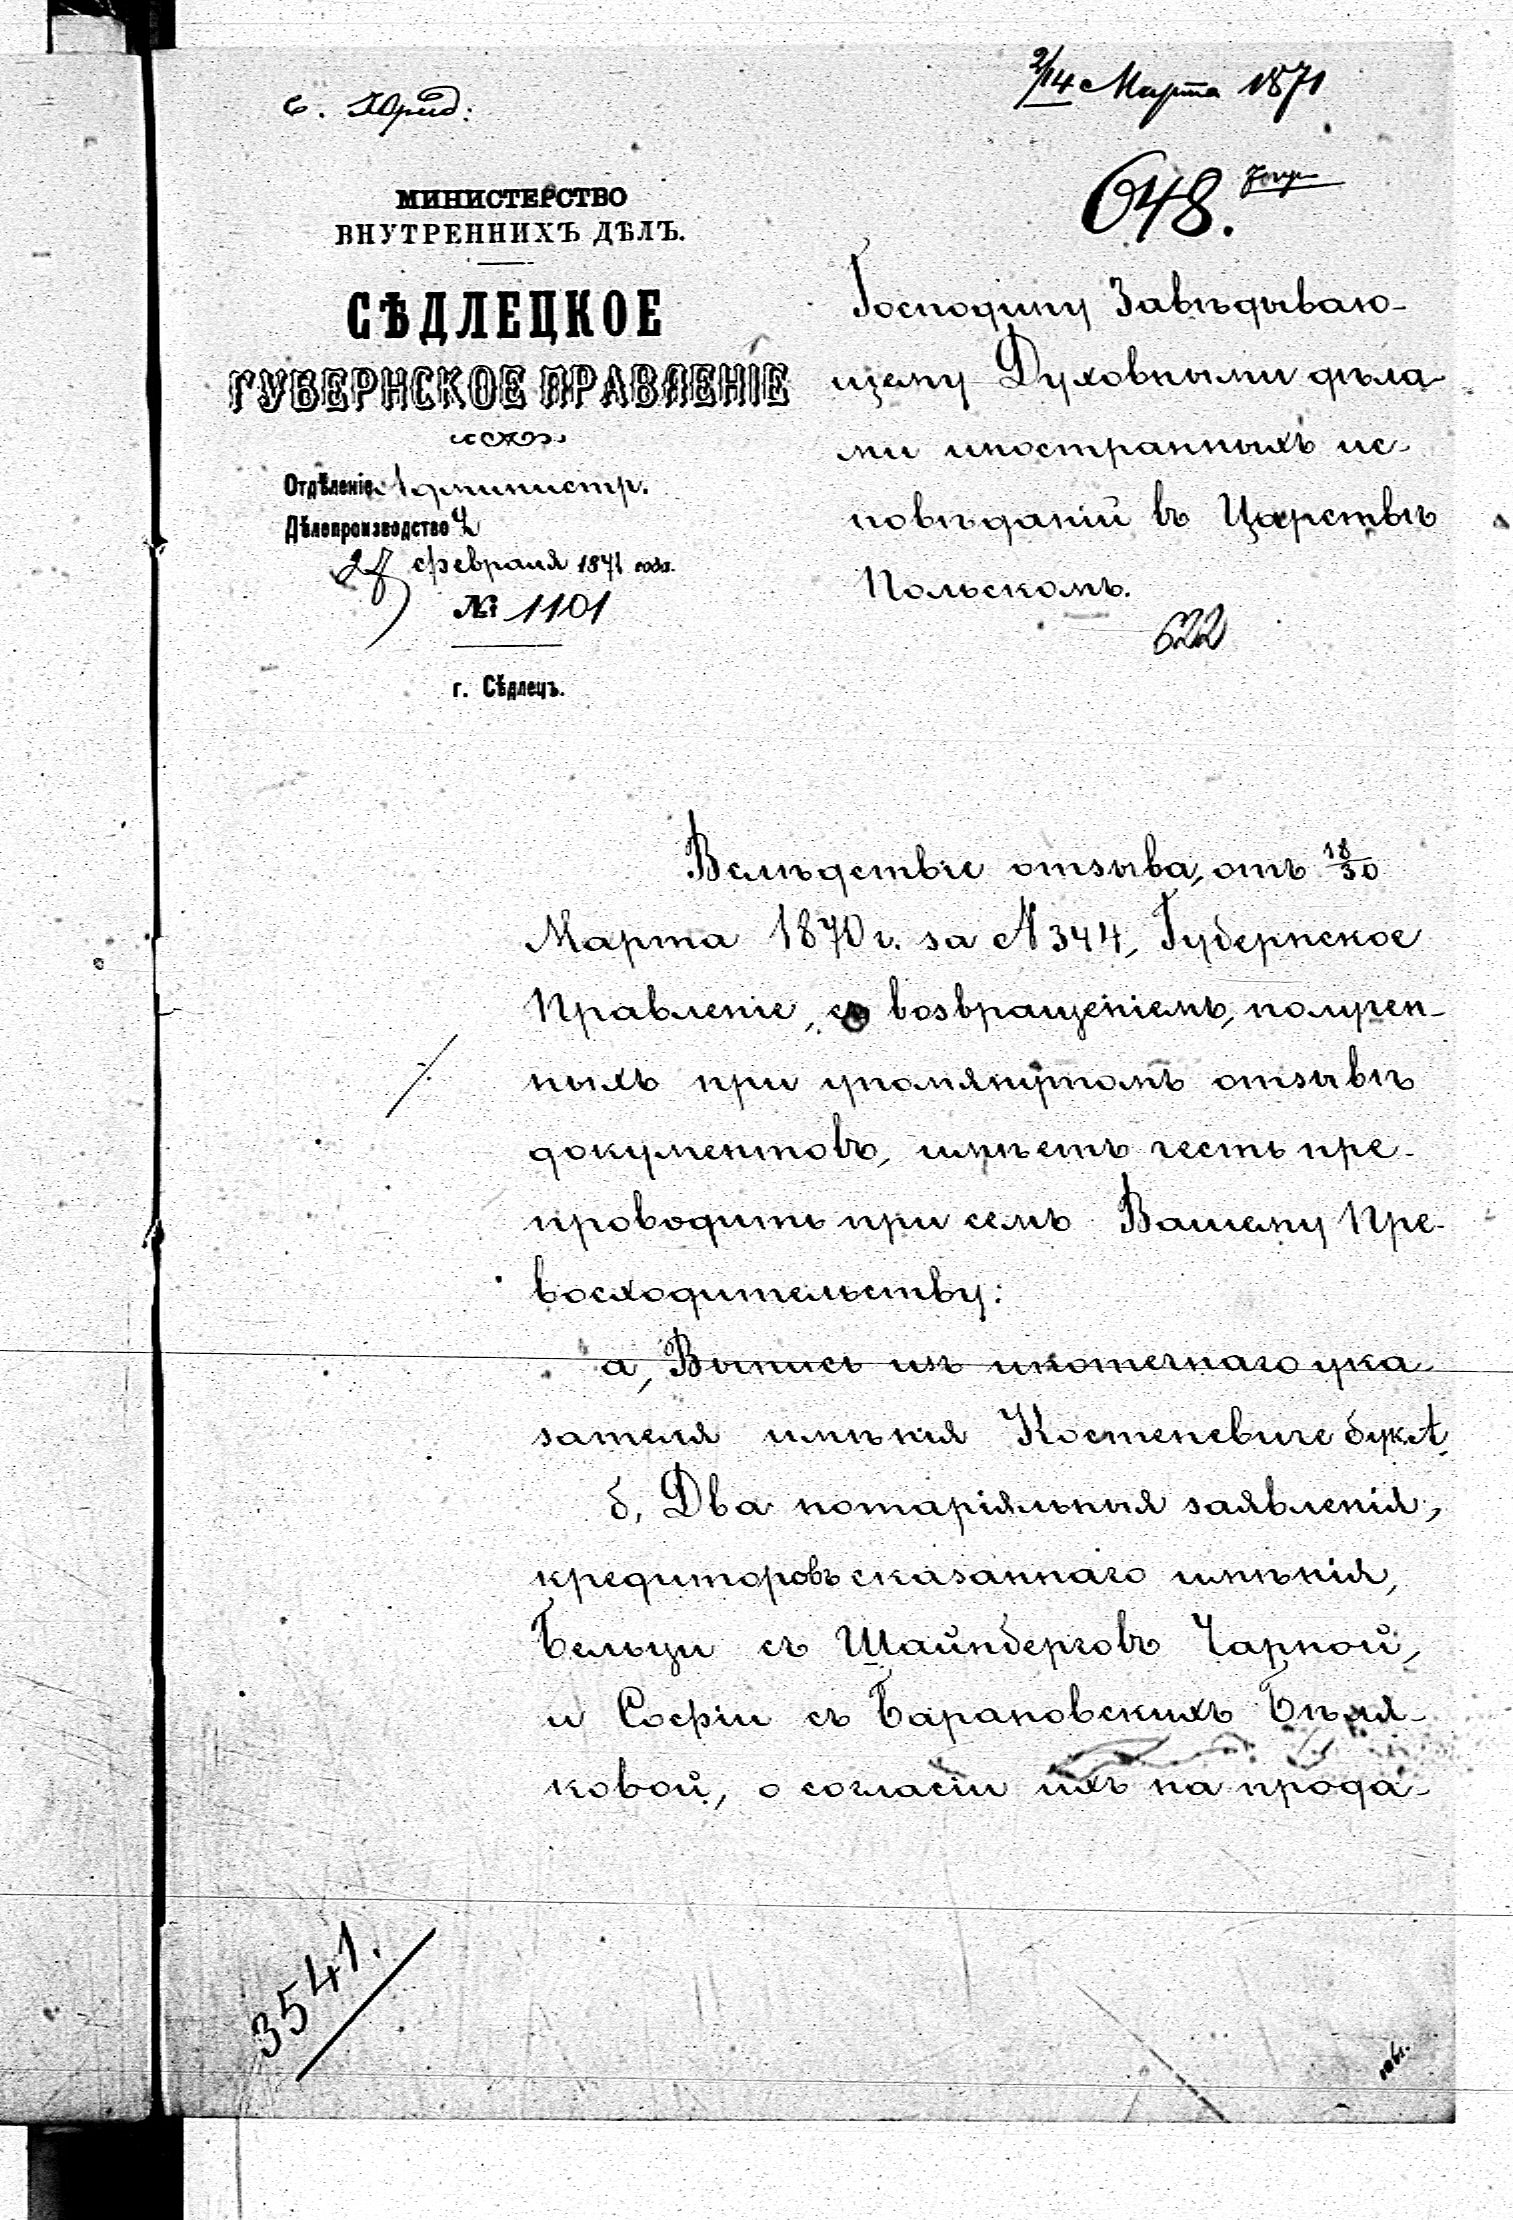 с. Юрид:
2/14 Марта 1871
648.
МИНИСТЕРСТВО
ВНУТРЕННИХЪ ДѢЛЪ.
СѢДЛЕЦКОЕ
ГУБЕРНСКОЕ ПРАВЛЕНІЕ
Отдѣленіе Администр.
Дѣлопроизводство 2
28 февраля 1871 года.
№ 1101
г. Сѣдлецъ.
Господину Завѣдываю-
щему Духовными дѣла-
ми иностранныхъ ис-
повѣданій въ Царствѣ
Польскомъ.
622
Вслѣдствіе отзыва, отъ 18/30
Марта 1870 г. за № 344, Губернское
Правленіе, съ возвращеніемъ, получен-
ныхъ при упомянутомъ отзывѣ
документовъ, имѣетъ честь пре-
проводить при семъ Вашему Пре-
восходительству:
а, Выпись изъ ипотечнаго ука-
зателя имѣнія Костеневиче бук. А,
б, Два нотаріяльныя заявленія,
кредиторовъ сказаннаго имѣнія,
Бельци съ Шайнберговъ Чарной,
и Софіи съ Барановскихъ Бѣля-
ковой, о согласіи ихъ на прода-
3541.